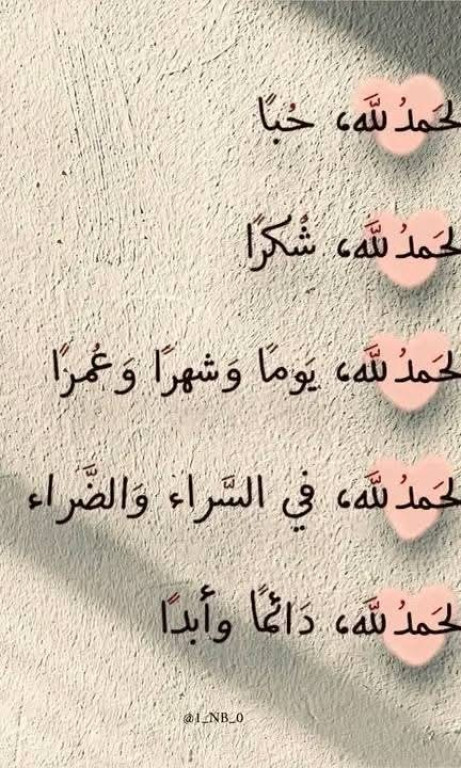 لحَمدُ للَّه، حُبًا
لحَمدُ للَّه، شُكرًا
لحَمدُ للَّه، يَومًا وَشهرًا وَعُمرًا
لحَمدُ للَّه، في السَّراء وَالضَّراء
لحَمدُ للَّه، دَائمًا وأبدًا
@1_NB_0